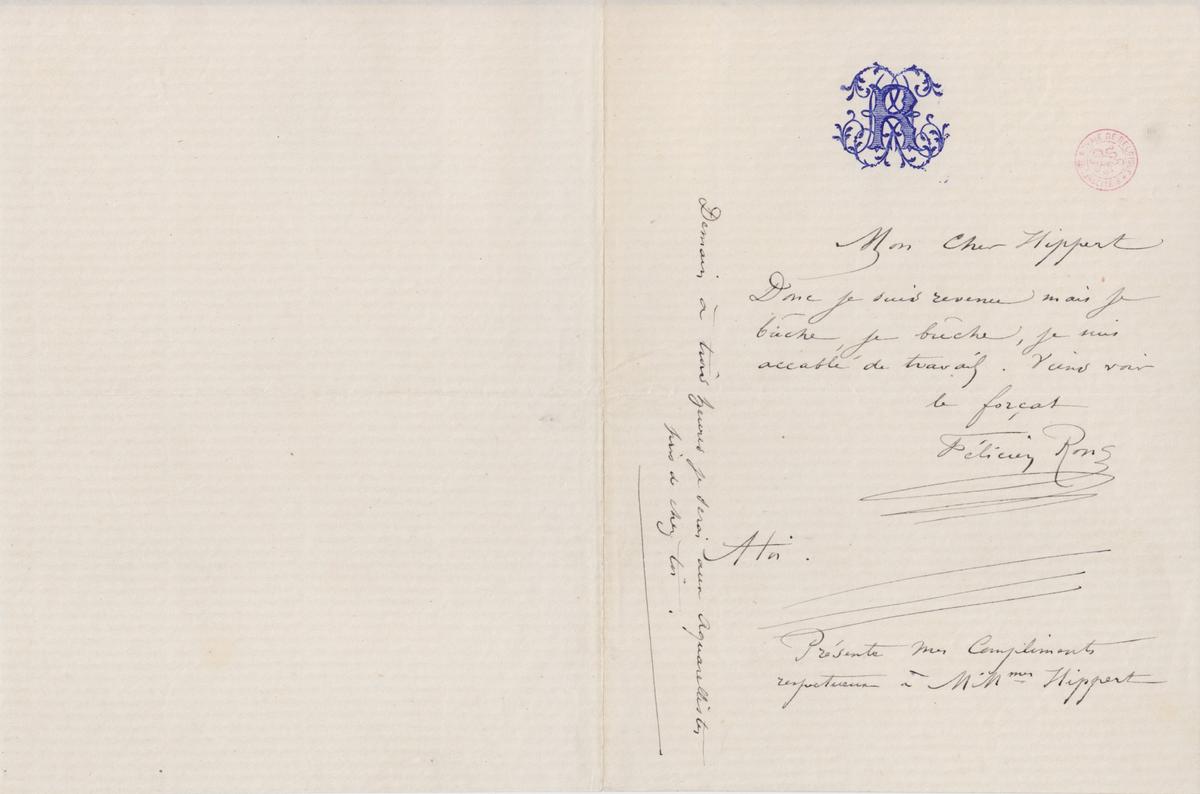 R
Mon Cher Hippert
Donc je suis revenu mais je
bûche, je bûche, je suis
accablé de travail. Viens voir
le forçat
Félicien Rops
A toi.
Présente mes Compliments
respectueux à MM^mes Hippert
Demain à trois heures je serai aux Aquarellistes
près de chez toi.